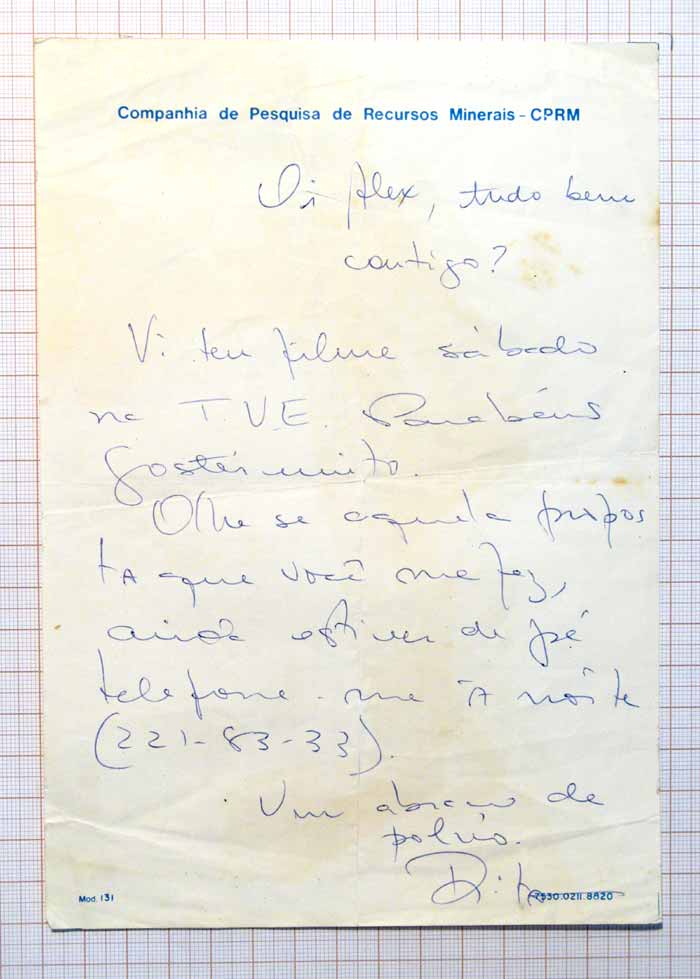 Companhia de Pesquisa de Recursos Minerais - CPRM
Oi Alex, tudo bem
contigo?
Vi teu filme sábado
na T.V.E. Parabéns
gostei muito.
Olhe se aquela propos
ta que você me fez,
ainda estiver de pé
telefone-me à noite
(221-83-33).
Um abraço de
polvo.
Rita
Mod. 131
7530.0211.8620